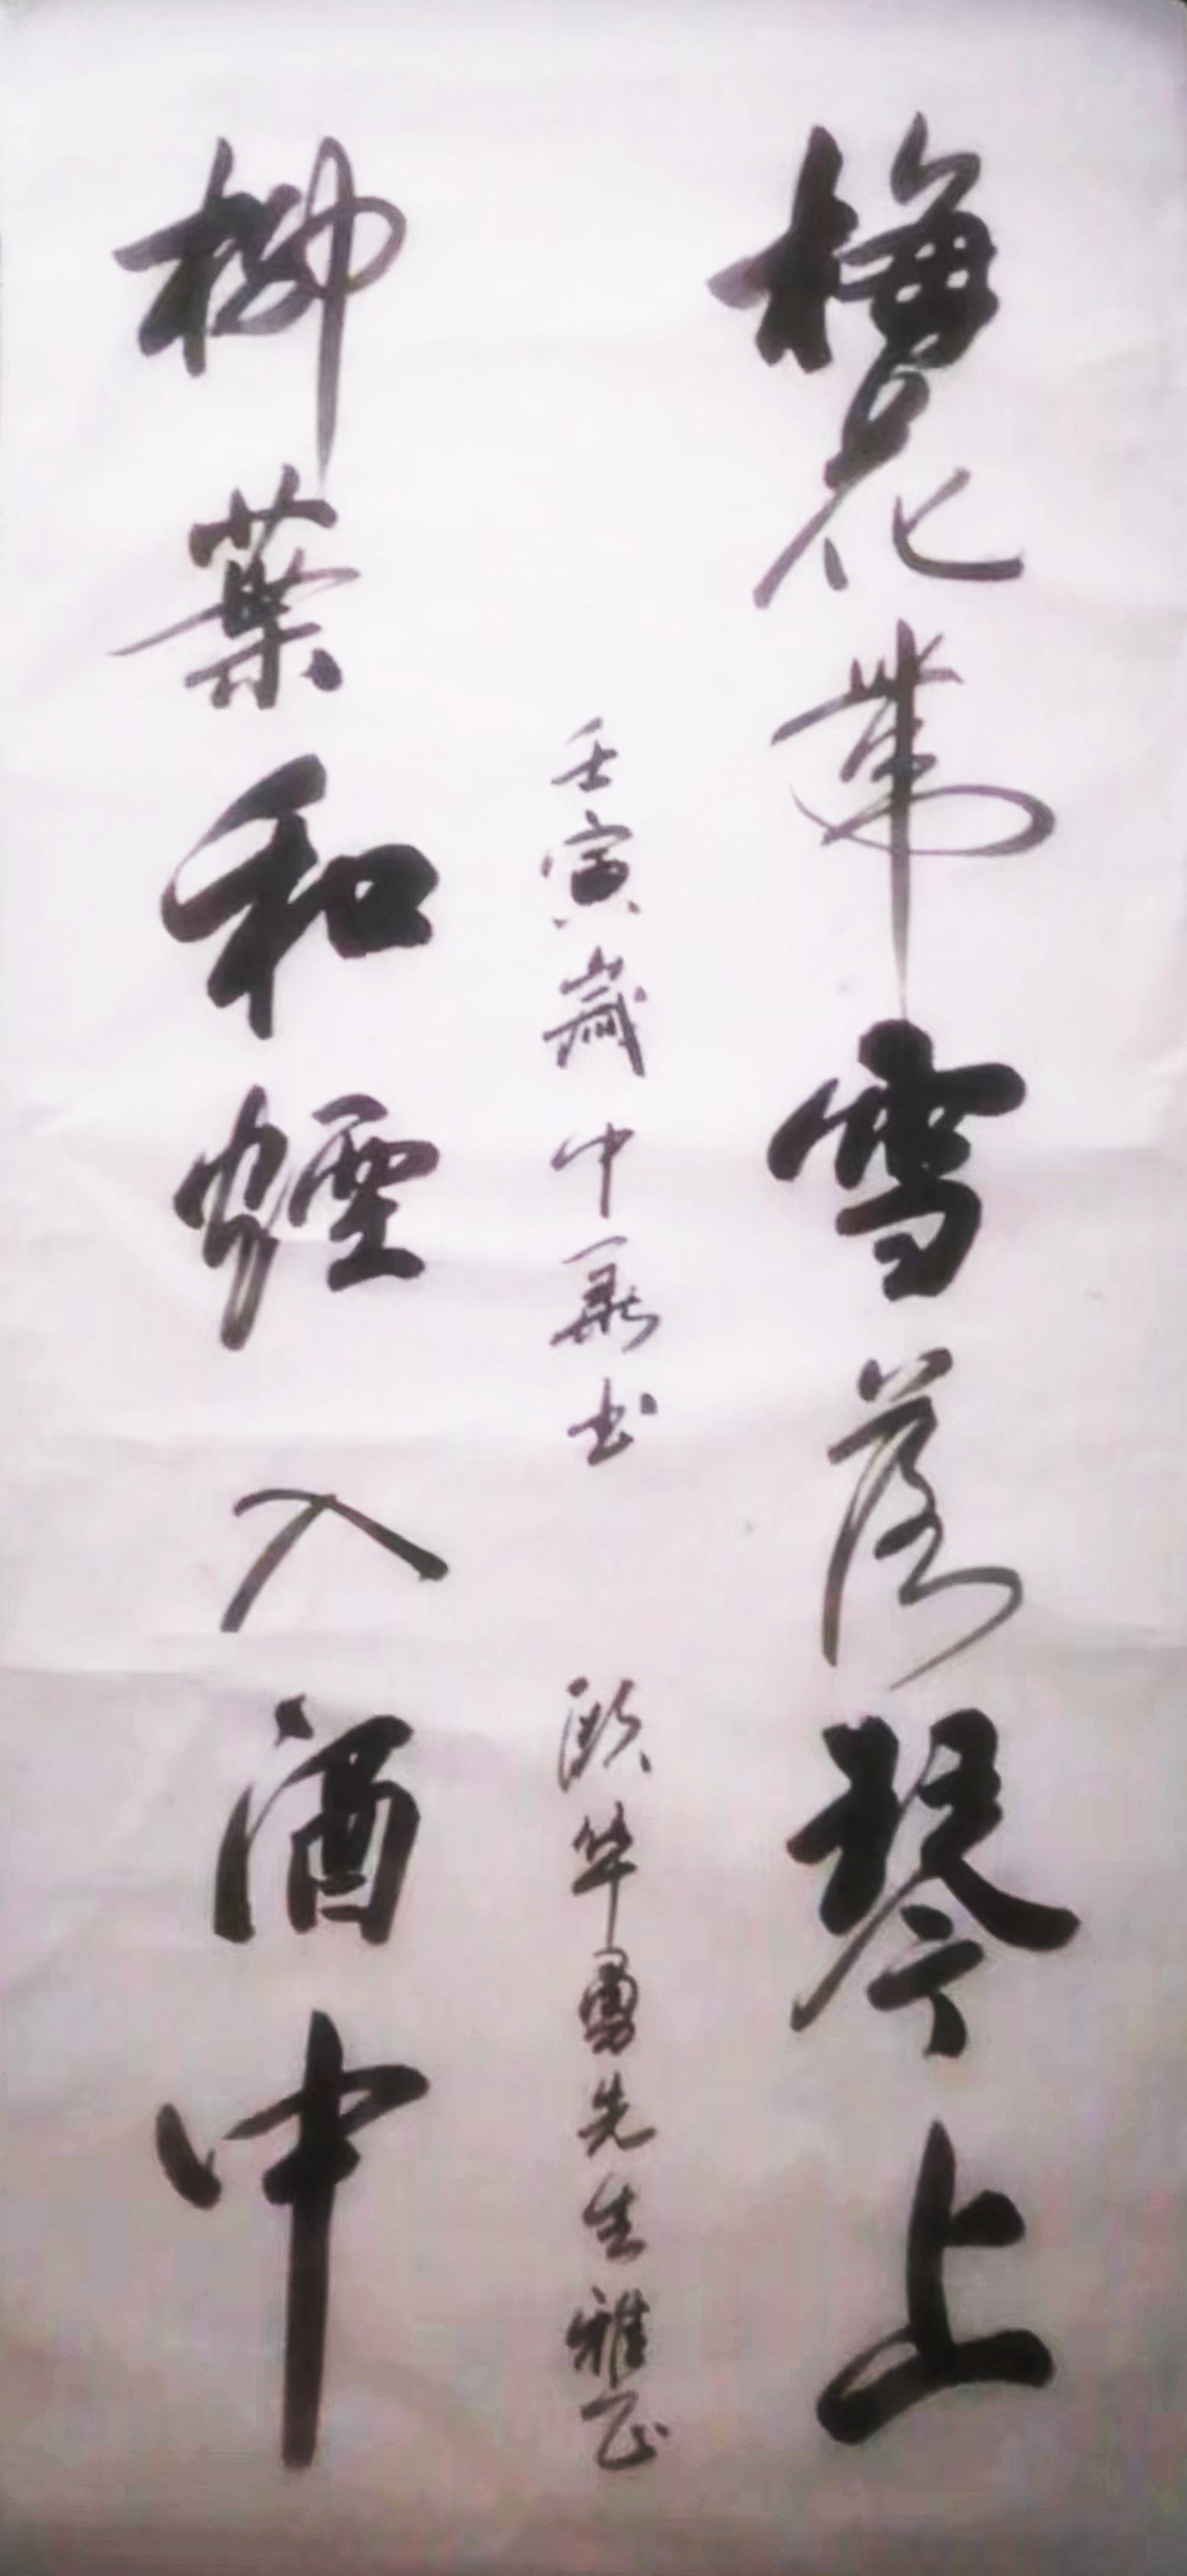 梅花帶雪落琴上
柳葉和煙入酒中
壬寅歲中 书
华勇先生雅正